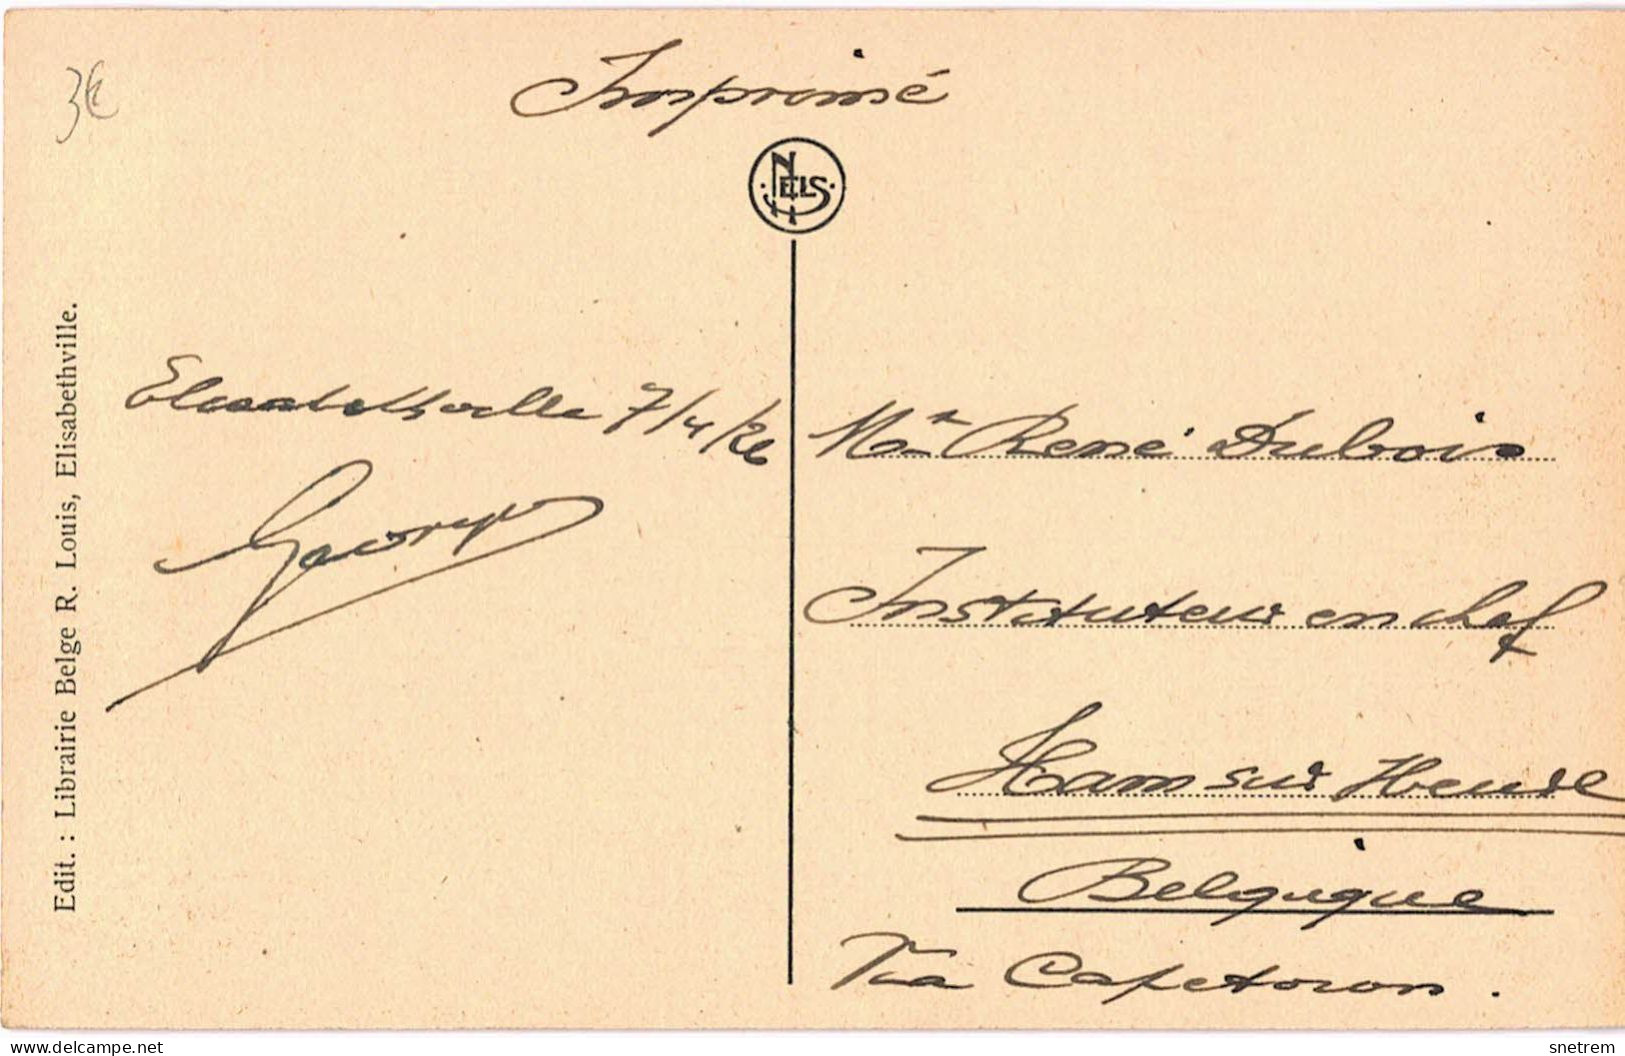 Imprimé
3€
NELS
Edit. : Librairie Belge R. Louis, Elisabethville.
Elisabethville 7/4/26
Georges
Mr René Dubois
Instituteur en chef
Ham sur Heure
Belgique
Via Capetown.
delcampe.net
snetrem